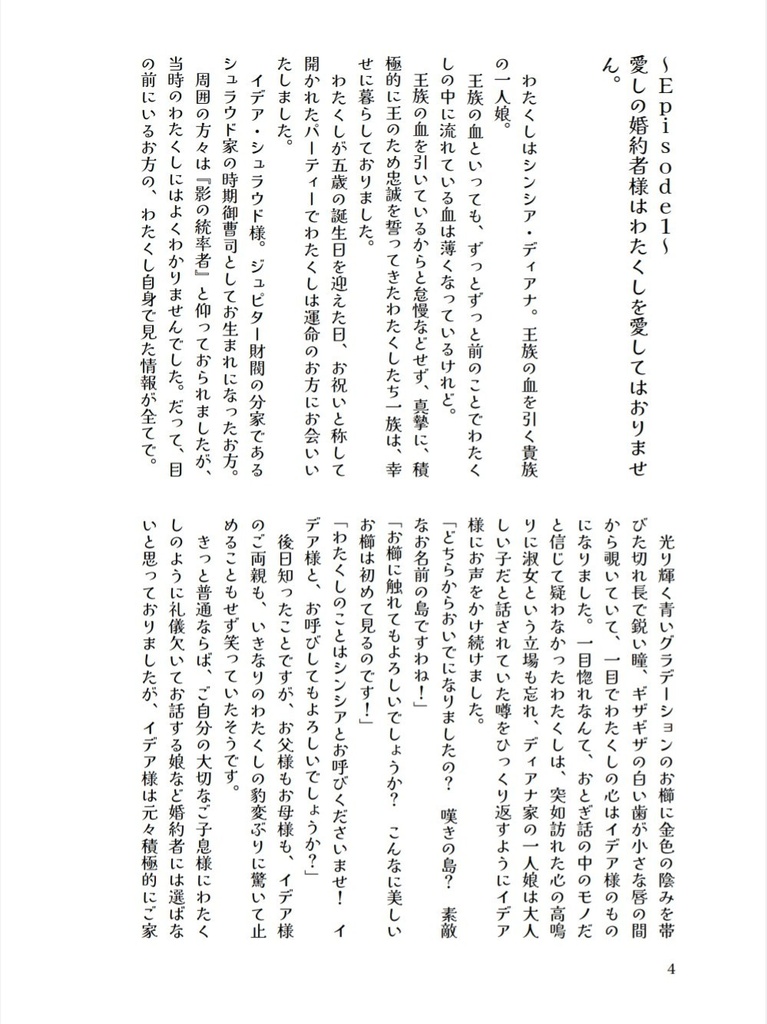 ～Episode1～
愛しの婚約者様はわたくしを愛してはおりませ
ん。
わたくしはシンシア・ディアナ。王族の血を引く貴族
の一人娘。
王族の血といっても、ずっとずっと前のことでわたく
しの中に流れている血は薄くなっているけれど。
王族の血を引いているからと怠慢などせず、真摯に、積
極的に王のため忠誠を誓ってきたわたくしたち一族は、幸
せに暮らしておりました。
わたくしが五歳の誕生日を迎えた日、お祝いと称して
開かれたパーティーでわたくしは運命のお方にお会いい
たしました。
イデア・シュラウド様。ジュピター財閥の分家である
シュラウド家の時期御曹司としてお生まれになったお方。
周囲の方々は『影の統率者』と仰っておられましたが、
当時のわたくしにはよくわかりませんでした。だって、目
の前にいるお方の、わたくし自身で見た情報が全てで。
光り輝く青いグラデーションのお櫛に金色の陰みを帯
びた切れ長で鋭い瞳、ギザギザの白い歯が小さな唇の間
から覗いていて、一目でわたくしの心はイデア様のもの
になりました。一目惚れなんて、おとぎ話の中のモノだ
と信じて疑わなかったわたくしは、突如訪れた心の高鳴
りに淑女という立場も忘れ、ディアナ家の一人娘は大人
しい子だと話されていた噂をひっくり返すようにイデア
様にお声をかけ続けました。
「どちらからおいでになりましたの？　嘆きの島？　素敵
なお名前の島ですわね！」
「お櫛に触れてもよろしいでしょうか？　こんなに美しい
お櫛は初めて見るのです！」
「わたくしのことはシンシアとお呼びくださいませ！　イ
デア様と、お呼びしてもよろしいでしょうか？」
後日知ったことですが、お父様もお母様も、イデア様
のご両親も、いきなりのわたくしの豹変ぶりに驚いて止
めることもせず笑っていたそうです。
きっと普通ならば、ご自分の大切なご子息様にわたく
しのように礼儀欠いてお話する娘など婚約者には選ばな
いと思っておりましたが、イデア様は元々積極的にご家
4